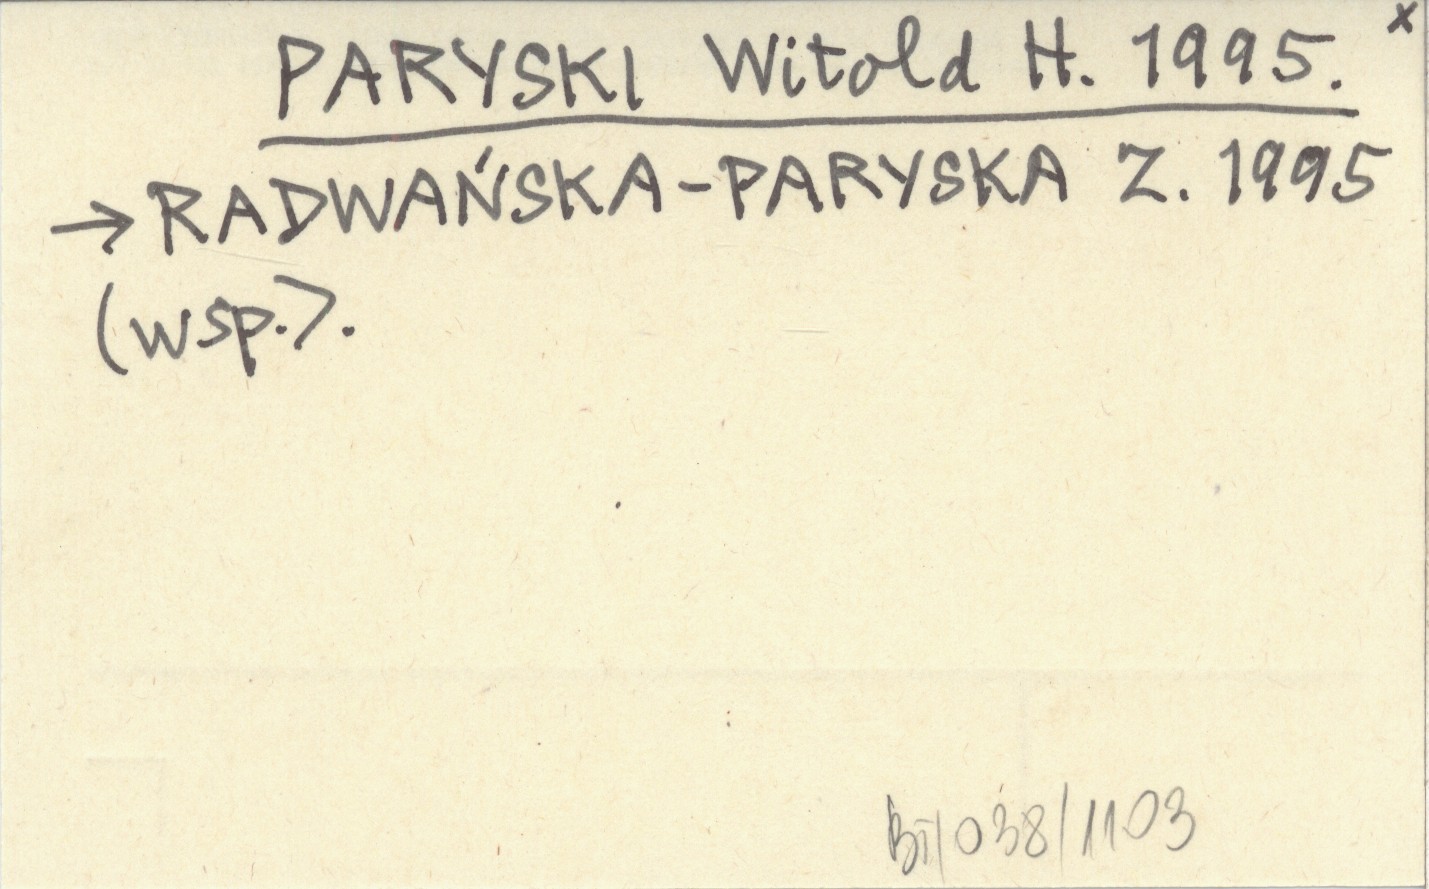 x
PARYSKI Witold H. 1995.
→ RADWAŃSKA-PARYSKA Z. 1995
(wsp.).
BT/038/1103